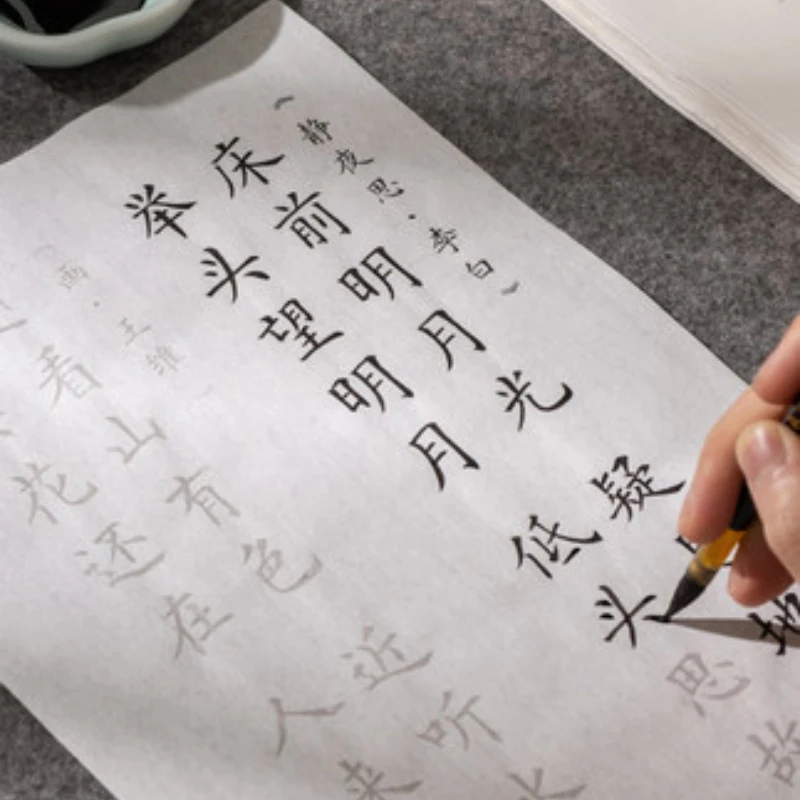 （静夜思·李白）
床前明月光 疑地
举头望明月 低头思故
（画·王维）
看山有色 近听水
花还在 人来